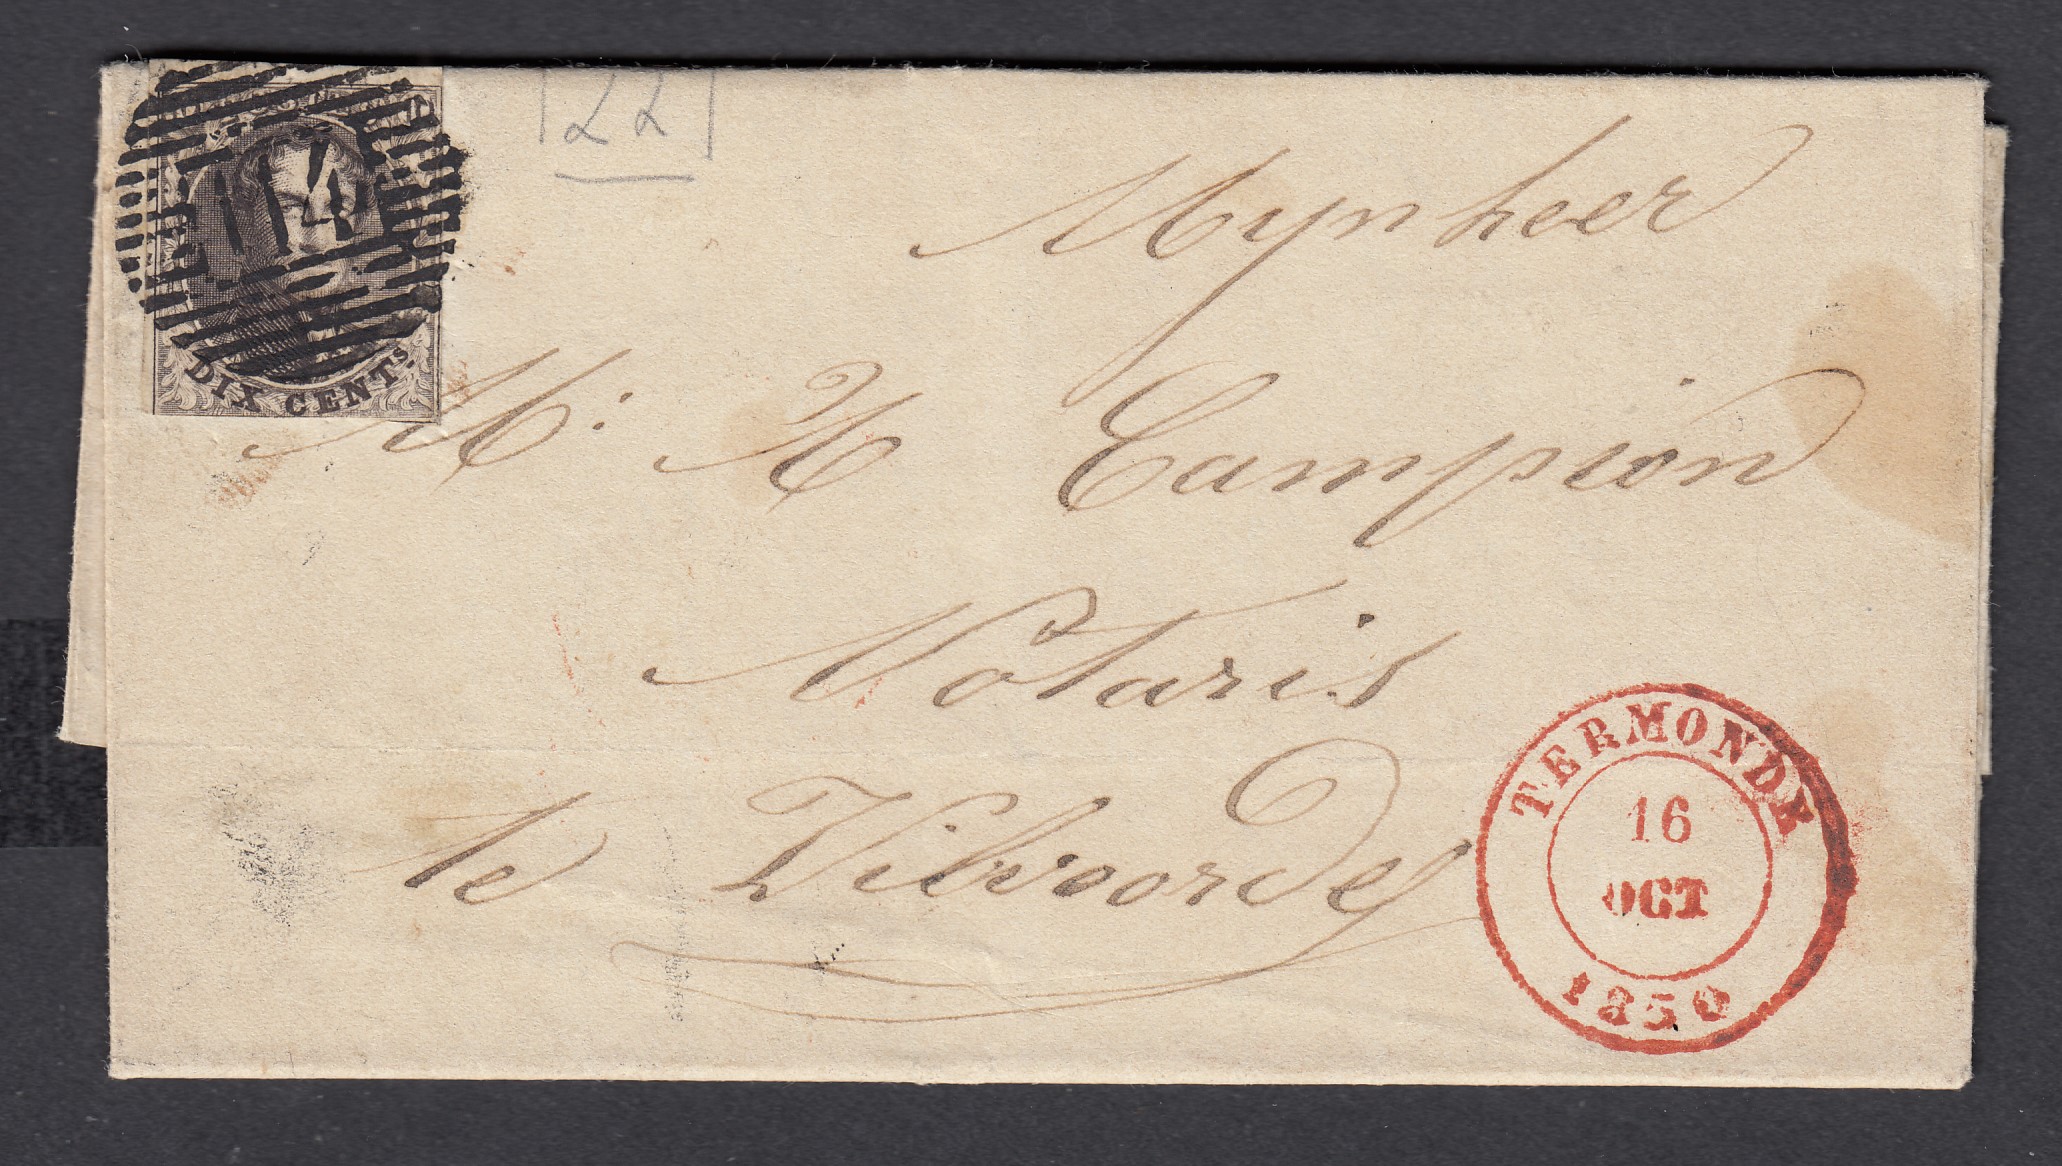 22
114
DIX CENTS.
Mynheer
M: H Campion
Notaris
te Vilvoorde
TERMONDE
16
OCT
1850